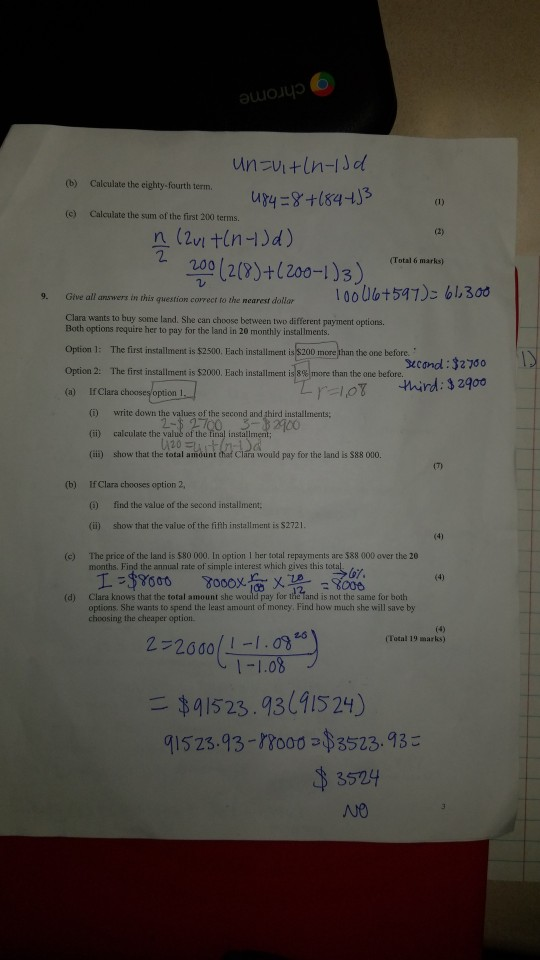 chrome
un=u1+(n-1)d
(b) Calculate the eighty-fourth term.
u84=8+(84-1)3
(1)
(c) Calculate the sum of the first 200 terms.
(2)
n/2 (2u1+(n-1)d)
(Total 6 marks)
200/2 (2(8)+(200-1)3)
100(16+597)=61,300
9. Give all answers in this question correct to the nearest dollar
Clara wants to buy some land. She can choose between two different payment options.
Both options require her to pay for the land in 20 monthly installments.
Option 1: The first installment is $2500. Each installment is $200 more than the one before.
second: $2700
Option 2: The first installment is $2000. Each installment is 8% more than the one before.
third: $2900
r=1.08
(a) If Clara chooses option 1,
(i) write down the values of the second and third installments;
2-$2700 3-$2900
(ii) calculate the value of the final installment;
u20=u1+(n-1)d
(iii) show that the total amount that Clara would pay for the land is $88 000.
(7)
(b) If Clara chooses option 2,
(i) find the value of the second installment;
(ii) show that the value of the fifth installment is $2721.
(4)
(c) The price of the land is $80 000. In option 1 her total repayments are $88 000 over the 20
months. Find the annual rate of simple interest which gives this total.
→6%
I=$8000 8000x r/100 x 20/12 = 8000
(4)
(d) Clara knows that the total amount she would pay for the land is not the same for both
options. She wants to spend the least amount of money. Find how much she will save by
choosing the cheaper option.
(4)
(Total 19 marks)
2=2000(1-1.08^20/1-1.08)
=$91523.93(91524)
91523.93-88000=$3523.93=
$3524
NO
3
1)